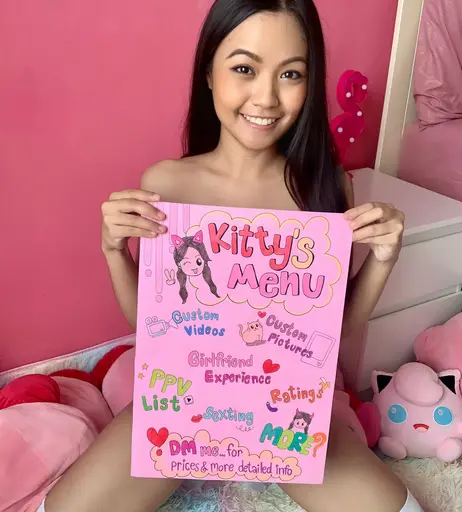 Kitty's
Menu
Custom
Videos
Custom
Pictures
Girlfriend
Experience
PPV
List
Ratings
Sexting
MORE?
DM me... for
prices & more detailed info